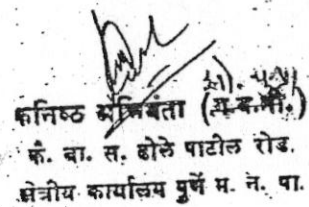 कनिष्ठ अभियंता (अ.क.वी.)
कं. वा. स. ढोले पाटील रोड.
क्षेत्रीय कार्यालय पुणें म. न. पा.